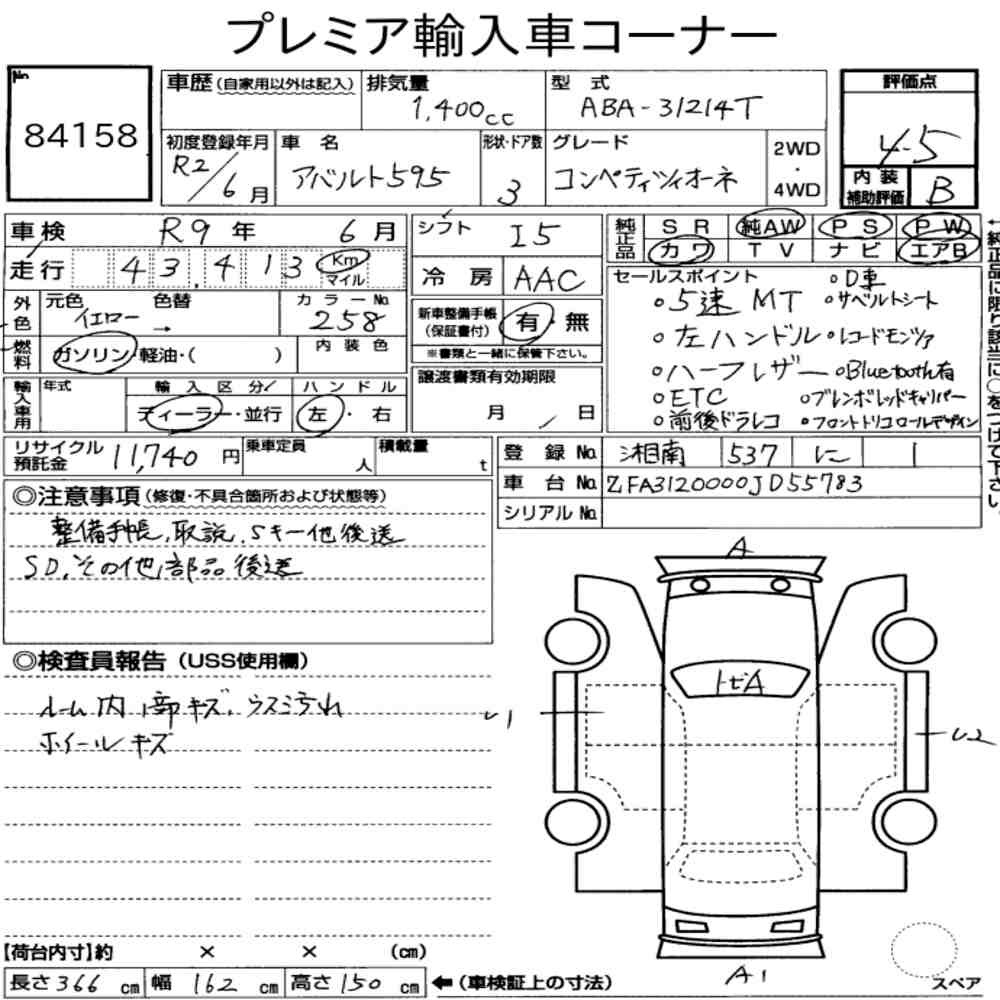 プレミア輸入車コーナー
No.
84158
車歴 (自家用以外は記入)
排気量
1,400cc
型式
ABA-31214T
評価点
4.5
初度登録年月
R2/6月
車名
アバルト595
形状・ドア数
3
グレード
コンペティツィオーネ
2WD
・
4WD
内装
補助評価
B
車検
R9年 6月
シフト
I5
純正品
SR 純AW PS PW
カワ TV ナビ エアB
走行
43,413
Km
マイル
冷房
AAC
セールスポイント
○D車
○5速MT ○サベルトシート
○左ハンドル ○レコードモンツァ
○ハーフレザー ○Bluetooth有
○ETC ○ブレンボレッドキャリパー
○前後ドラレコ ○フロントトリコロールデザイン
←純正品に限り該当に○をつけて下さい。
外色
元色
イエロー
色替
→
カラーNo.
258
新車整備手帳
(保証書付)
有・無
※書類と一緒に保管下さい。
燃料
ガソリン・軽油・( )
内装色
譲渡書類有効期限
月 日
輸入車用
年式
輸入区分
ディーラー・並行
ハンドル
左・右
リサイクル
預託金
11,740円
乗車定員
人
積載量
t
登録No.
湘南 537 に 1
車台No.
ZFA3120000JD55783
シリアルNo.
◎注意事項(修復・不具合箇所および状態等)
整備手帳,取説,Sキー他後送
SD,その他部品後送
◎検査員報告(USS使用欄)
ルーム内1部キズ,ウスミ汚れ
ホイールキズ
A
トビA
A1
【荷台内寸】約 × × (cm)
長さ366cm 幅162cm 高さ150cm ←(車検証上の寸法)
スペア